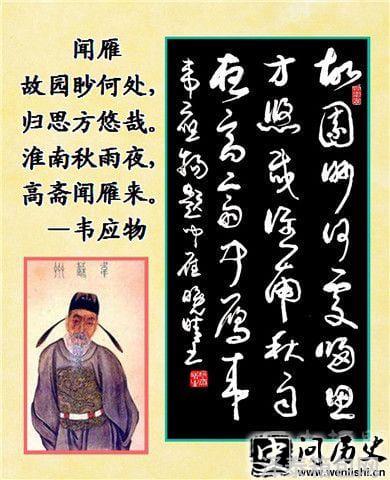 闻雁
故园眇何处,
归思方悠哉。
淮南秋雨夜,
高斋闻雁来。
—韦应物
故園眇何處歸思
方悠哉淮南秋雨
夜高斋闻雁来
韦应物题闻雁
韋蘇州
问历史
www.wenlishi.com